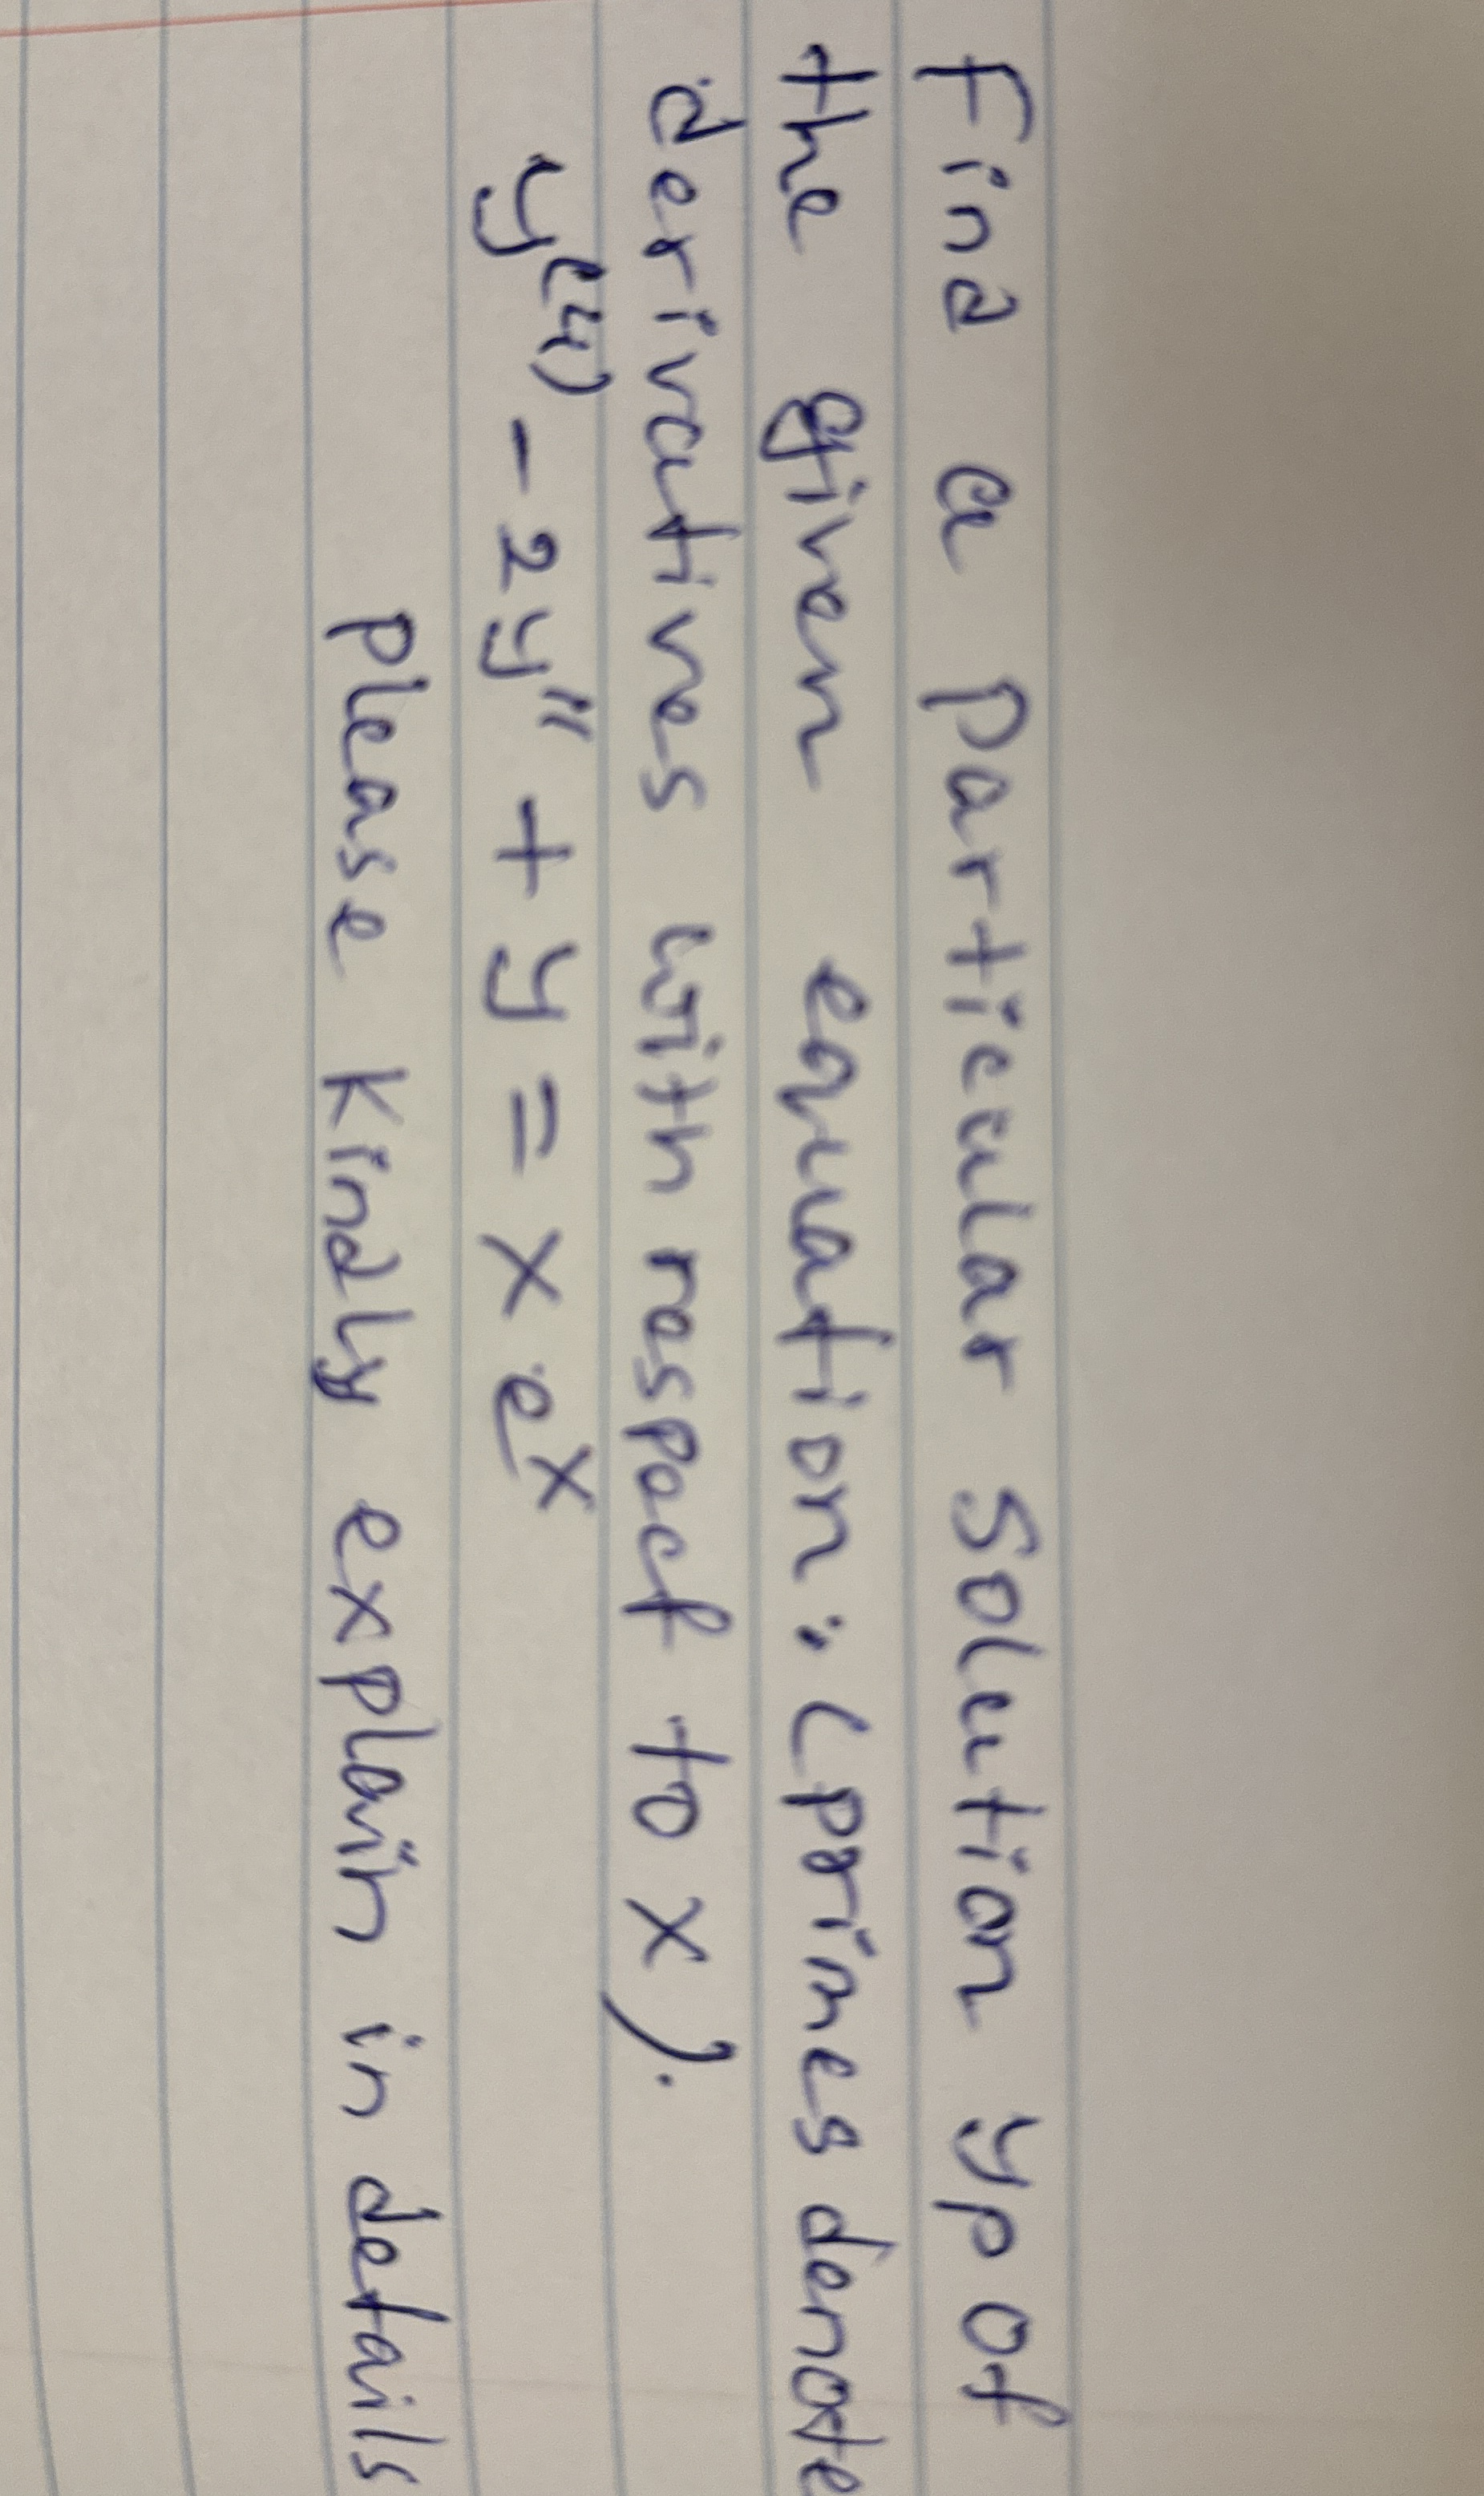 Find a particular solution yp of
the given equation: (primes denote
derivatives with respect to x).
y⁽⁴⁾ - 2y" + y = x eˣ
please kindly explain in details